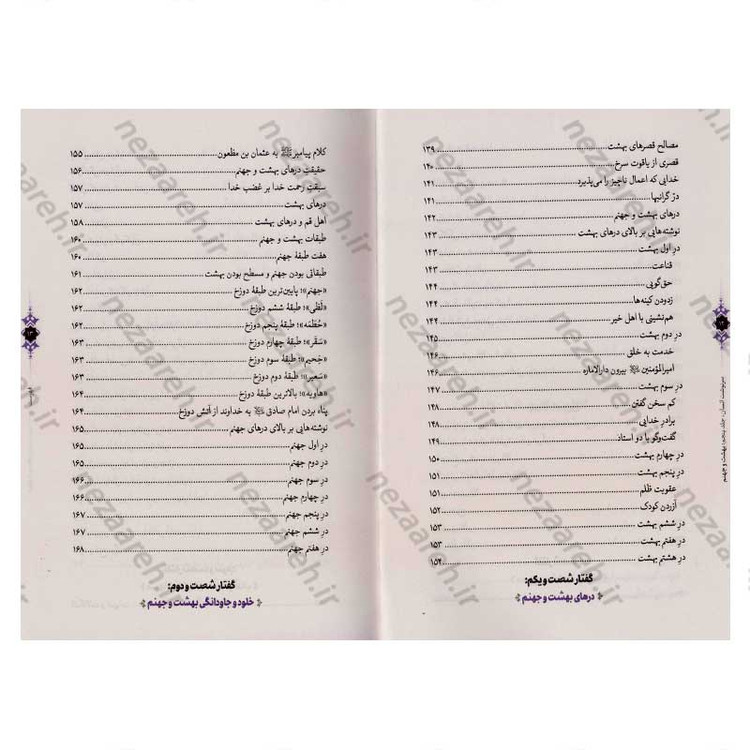 مصالح قصرهای بهشت ۱۳۹
قصری از یاقوت سرخ ۱۴۰
خدایی که اعمال ناچیز را می‌پذیرد ۱۴۱
درّ گرانبها ۱۴۱
درهای بهشت و جهنم ۱۴۲
نوشته‌هایی بر بالای درهای بهشت ۱۴۳
درِ اول بهشت ۱۴۳
قناعت ۱۴۳
حق‌گویی ۱۴۴
زدودن کینه‌ها ۱۴۴
هم‌نشینی با اهل خیر ۱۴۴
درِ دوم بهشت ۱۴۵
خدمت به خلق ۱۴۶
امیرالمؤمنین بیرون دارالاماره ۱۴۶
درِ سوم بهشت ۱۴۷
کم سخن گفتن ۱۴۸
برادرِ خدایی ۱۴۸
گفت‌وگو با دو استاد ۱۴۹
درِ چهارم بهشت ۱۵۰
درِ پنجم بهشت ۱۵۱
عقوبت ظلم ۱۵۱
آزردن کودک ۱۵۱
درِ ششم بهشت ۱۵۳
درِ هفتم بهشت ۱۵۳
درِ هشتم بهشت ۱۵۴
گفتار شصت و یکم:
درهای بهشت و جهنم
سرنوشت انسان، جلد پنجم: بهشت و جهنم
کلام پیامبر ﷺ به عثمان بن مظعون ۱۵۵
حقیقتِ درهای بهشت و جهنم ۱۵۶
سبقتِ رحمت خدا بر غضب خدا ۱۵۷
درهای بهشت ۱۵۷
اهل قم و درهای بهشت ۱۵۸
طبقات بهشت و جهنم ۱۶۰
هفت طبقهٔ جهنم ۱۶۰
طبقاتی بودن جهنم و مسطح بودن بهشت ۱۶۱
«جهنم»؛ پایین‌ترین طبقهٔ دوزخ ۱۶۲
«لَظی»؛ طبقهٔ ششم دوزخ ۱۶۲
«حُطَمه»؛ طبقهٔ پنجم دوزخ ۱۶۲
«سَقَر»؛ طبقهٔ چهارم دوزخ ۱۶۳
«جَحیم»؛ طبقهٔ سوم دوزخ ۱۶۳
«سَعیر»؛ طبقهٔ دوم دوزخ ۱۶۳
«هاویه»؛ بالاترین طبقهٔ دوزخ ۱۶۴
پناه بردن امام صادق به خداوند از آتش دوزخ ۱۶۴
نوشته‌هایی بر بالای درهای جهنم ۱۶۵
درِ اول جهنم ۱۶۵
درِ دوم جهنم ۱۶۵
درِ سوم جهنم ۱۶۶
درِ چهارم جهنم ۱۶۶
درِ پنجم جهنم ۱۶۷
درِ ششم جهنم ۱۶۷
درِ هفتم جهنم ۱۶۸
گفتار شصت و دوم:
خلود و جاودانگی بهشت و جهنم
nezaareh.ir